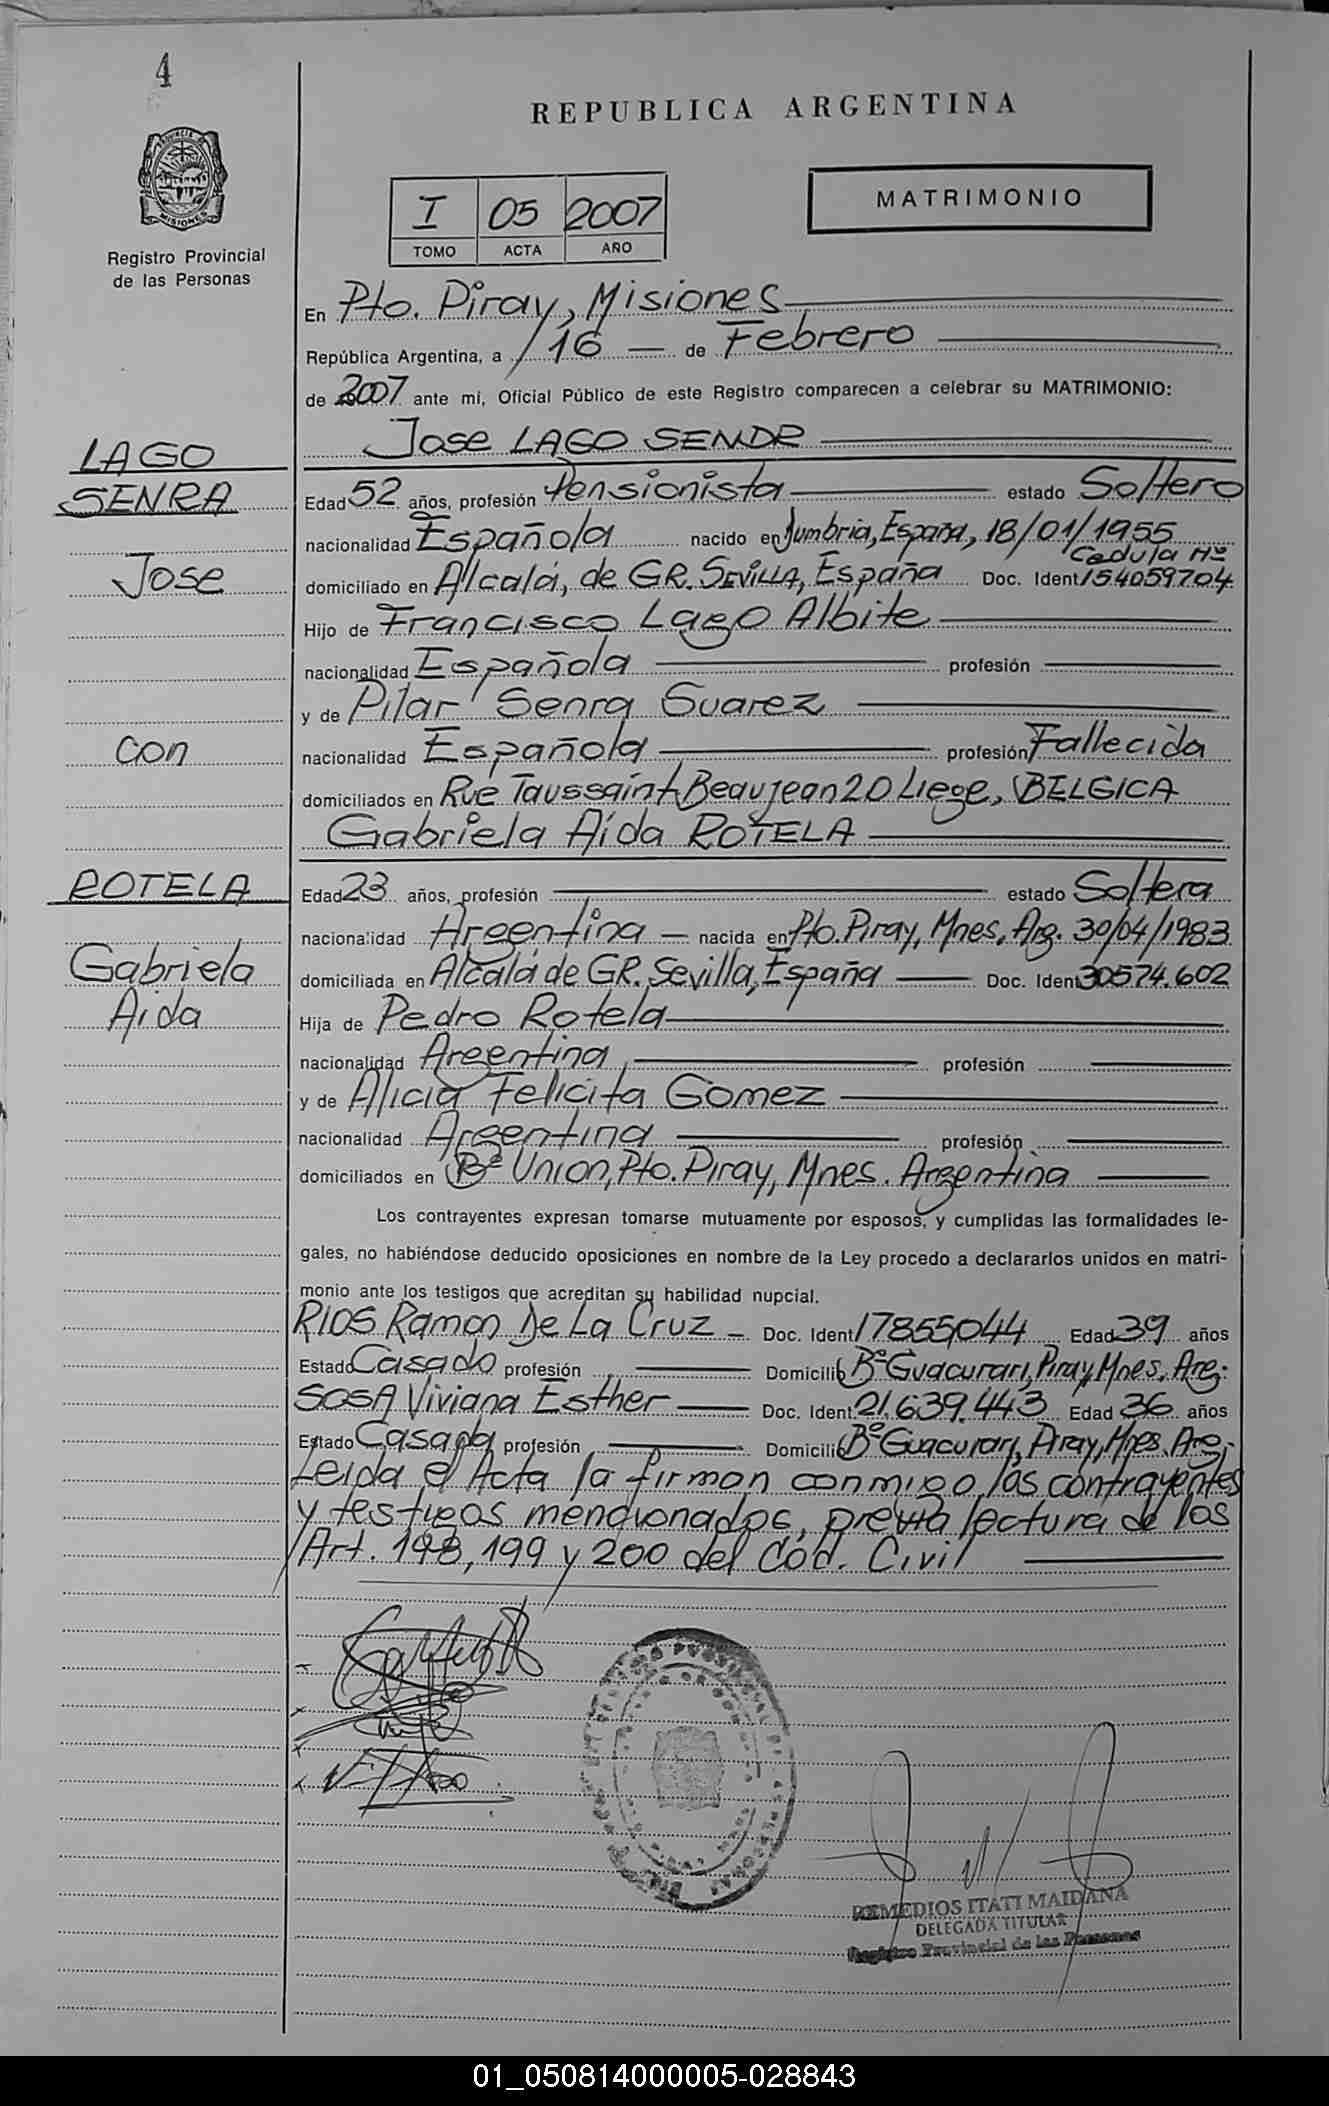 4
REPUBLICA ARGENTINA
PROVINCIA DE
MISIONES
Registro Provincial
de las Personas
I 05 2007
TOMO ACTA AÑO
MATRIMONIO
En Pto. Piray, Misiones
República Argentina, a /16 — de Febrero
de 2007 ante mi, Oficial Público de este Registro comparecen a celebrar su MATRIMONIO:
LAGO
SENRA
Jose
con
ROTELA
Gabriela
Aida
Jose LAGO SENDR
Edad 52 años, profesión Pensionista estado Soltero
nacionalidad Española nacido en Jumbria, España, 18/01/1955
domiciliado en Alcalá, de GR. SEVILLA, España Doc. Ident. Cedula Nº 154059704
Hijo de Francisco Lago Albite
nacionalidad Española profesión
y de Pilar Senra Suarez
nacionalidad Española profesión Fallecida
domiciliados en Rue Taussaint Beaujean 20 Liege, BELGICA
Gabriela Aida ROTELA
Edad 23 años, profesión estado Soltera
nacionalidad Argentina — nacida en Pto. Piray, Mnes, Arg. 30/04/1983
domiciliada en Alcalá de GR. Sevilla, España Doc. Ident 30574.602
Hija de Pedro Rotela
nacionalidad Argentina profesión
y de Alicia Felicita Gomez
nacionalidad Argentina profesión
domiciliados en Bº Union, Pto. Piray, Mnes. Argentina
Los contrayentes expresan tomarse mutuamente por esposos, y cumplidas las formalidades le-
gales, no habiéndose deducido oposiciones en nombre de la Ley procedo a declararlos unidos en matri-
monio ante los testigos que acreditan su habilidad nupcial.
RIOS Ramon De La Cruz — Doc. Ident 17855044 Edad 39 años
Estado Casado profesión Domicilio Bº Guacurari, Piray, Mnes, Arg.
SOSA Viviana Esther Doc. Ident. 21.639.443 Edad 36 años
Estado Casada profesión Domicilio Bº Guacurari, Piray, Mnes. Arg.
Leida el Acta la firman conmigo, los contrayentes
y testigos mencionados, previa lectura de los
/Art. 198, 199 y 200 del Cód. Civil
REMEDIOS ITATI MAIDANA
DELEGADA TITULAR
Registro Provincial de las Personas
01_050814000005-028843